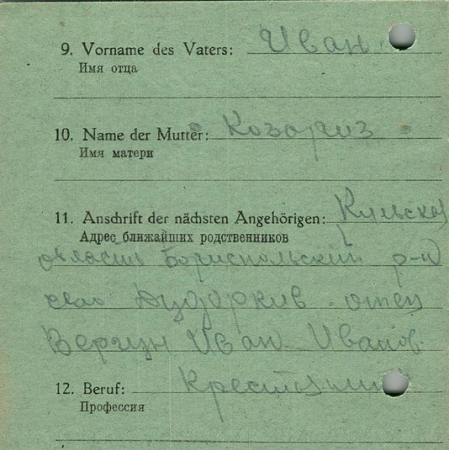 9. Vorname des Vaters: Иван
Имя отца
10. Name der Mutter: Козориз
Имя матери
11. Anschrift der nächsten Angehörigen:
Адрес ближайших родственников
область Бориспольский р-н
село отец
Вергун Иван Иванов
12. Beruf: Крестьянин
Профессия